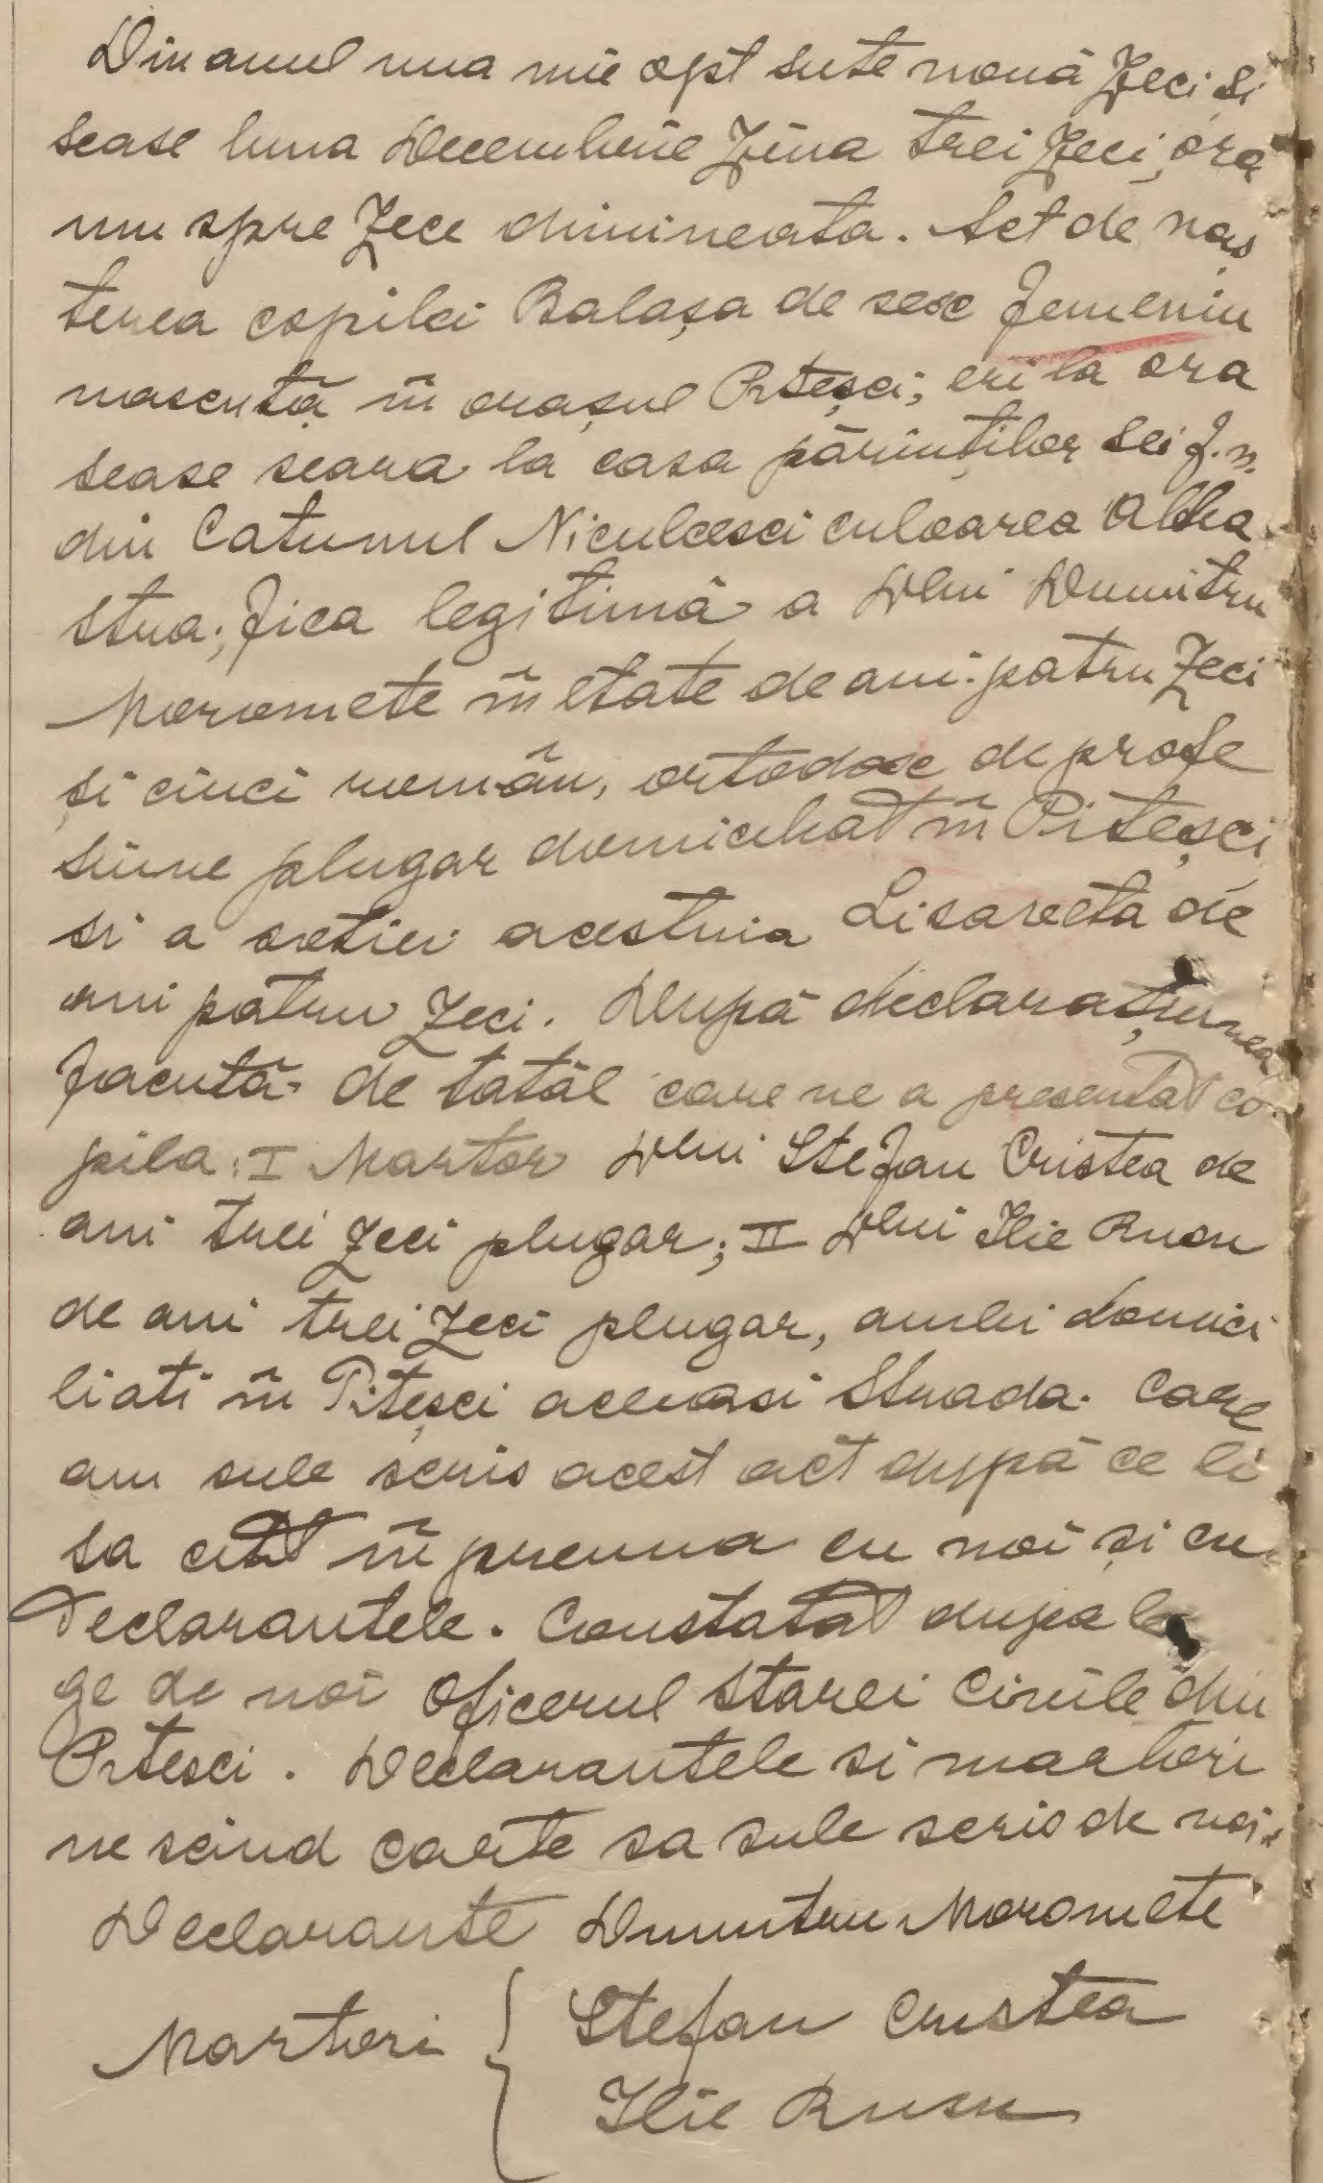 Din anul una mie opt sute nouă Zeci si
sease luna Decembrie Ziua trei Zeci, ora
un spre Zece diminеata. Act de nas
terea copilei Balașa de sex femenin
nascută în orașul Pitesci; eri la ora
sease seara la casa părinților sei f. n.
din Catunul Niculcesci culoarea Alba
stra; fica legitimă a Dlui Dumitru
Moromete în etate de ani patru Zeci
și cinci român, ortodox de profe
siune plugar domiciliat în Pitesci
si a sotiei acestuia Lisaveta de
ani patru Zeci. După declarațiunea
facută de tatăl care ne a presentat co
pila: I Martor Dlui Stefan Cristea de
ani trei Zeci plugar; II Dlui Ilie Rusu
de ani trei Zeci plugar, ambii domici
liati în Pitesci aceeasi Strada. Care
am sub scris acest act după ce li
sa citit în preuna cu noi și cu
Declarantele. Constatat dupa le
ge de noi Oficerul Starei Civile din
Pitesci. Declarantele si martori
ne sciind carte sa sub scris de noi.
Declarante Dumitru Moromete
Martori { Stefan Cristea
Ilie Rusu